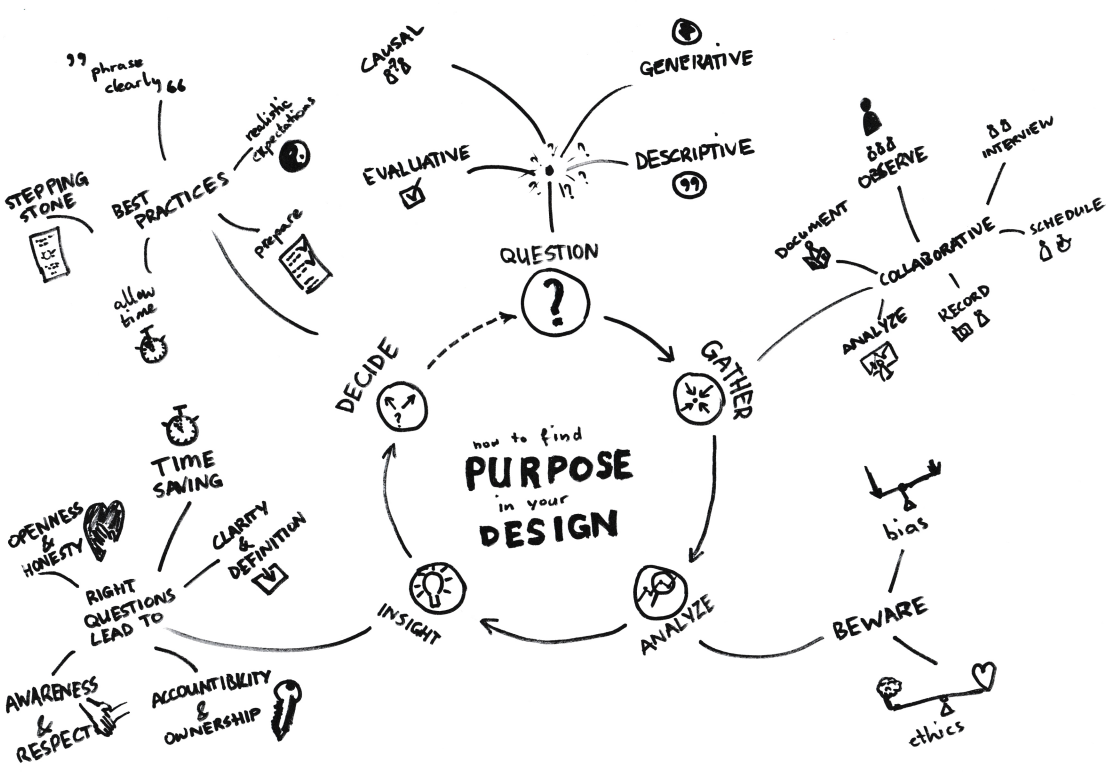 how to find
PURPOSE
in your
DESIGN
QUESTION
?
CAUSAL
?
GENERATIVE
EVALUATIVE
DESCRIPTIVE
99
? ? ? ? ? ? !?
GATHER
COLLABORATIVE
OBSERVE
INTERVIEW
SCHEDULE
RECORD
ANALYZE
DOCUMENT
ANALYZE
BEWARE
bias
ethics
INSIGHT
RIGHT
QUESTIONS
LEAD TO
TIME
SAVING
CLARITY
&
DEFINITION
ACCOUNTIBILITY
&
OWNERSHIP
AWARENESS
&
RESPECT
OPENNESS
&
HONESTY
DECIDE
?
BEST
PRACTICES
„ phrase
clearly “
realistic
expectations
prepare
allow
time
STEPPING
STONE